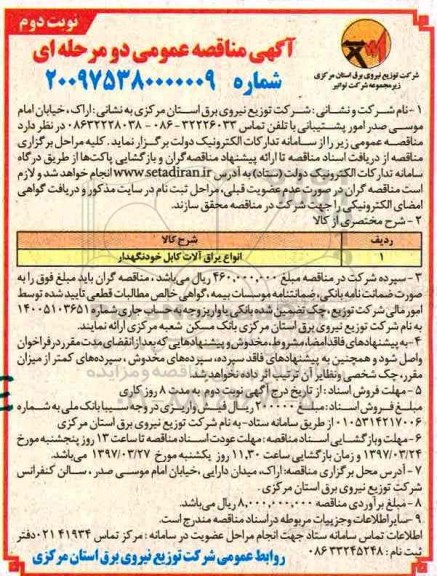 نوبت دوم
آگهی مناقصه عمومی دو مرحله ای
شماره ۲۰۰۹۷۵۳۸۰۰۰۰۰۰۹
شرکت توزیع نیروی برق استان مرکزی
زیرمجموعه شرکت توانیر
۱- نام شرکت و نشانی: شرکت توزیع نیروی برق استان مرکزی به نشانی: اراک، خیابان امام
موسی صدر امور پشتیبانی با تلفن تماس ۳۲۲۲۶۰۳۳-۰۸۶ - ۰۸۶۳۲۲۲۸۰۳۸ در نظر دارد
مناقصه عمومی زیر را از سامانه تدارکات الکترونیک دولت برگزار نماید. کلیه مراحل برگزاری
مناقصه از دریافت اسناد مناقصه تا ارائه پیشنهاد مناقصه گران و بازگشایی پاکت‌ها از طریق درگاه
سامانه تدارکات الکترونیک دولت (ستاد) به آدرس www.setadiran.ir انجام خواهد شد و لازم
است مناقصه گران در صورت عدم عضویت قبلی، مراحل ثبت نام در سایت مذکور و دریافت گواهی
امضای الکترونیکی را جهت شرکت در مناقصه محقق سازند.
۲- شرح مختصری از کالا
ردیف شرح کالا
۱ انواع یراق آلات کابل خودنگهدار
۳- سپرده شرکت در مناقصه مبلغ ۴۶۰,۰۰۰,۰۰۰ ریال می‌باشد، مناقصه گران باید مبلغ فوق را به
صورت ضمانت نامه بانکی، ضمانتنامه موسسات بیمه، گواهی خالص مطالبات قطعی تایید شده توسط
امور مالی شرکت توزیع، چک تضمین شده بانکی یا واریز وجه به حساب جاری شماره ۱۴۰۰۵۱۰۳۶۵۱
به نام شرکت توزیع نیروی برق استان مرکزی بانک مسکن شعبه مرکزی ارائه نمایند.
۴- به پیشنهادهای فاقد امضاء، مشروط، مخدوش و پیشنهادهایی که بعد از انقضای مدت مقرر در فراخوان
واصل شود و همچنین به پیشنهادهای فاقد سپرده، سپرده‌های مخدوش، سپرده‌های کمتر از میزان
مقرر، چک شخصی و نظایر آن ترتیب اثر داده نخواهد شد.
۵- مهلت فروش اسناد: از تاریخ درج آگهی نوبت دوم به مدت ۸ روز کاری
مبلغ فروش اسناد: مبلغ ۲۰۰,۰۰۰ ریال طی فیش واریزی در وجه سیبا بانک ملی به شماره
۰۱۰۵۳۱۴۲۱۷۰۰۶ از طریق سامانه ستاد- به نام شرکت توزیع نیروی برق استان مرکزی
۶- مهلت و بازگشایی اسناد مناقصه: مهلت عودت اسناد مناقصه تا ساعت ۱۳ روز پنجشنبه مورخ
۱۳۹۷/۰۳/۲۴ و زمان بازگشایی ساعت ۱۱,۳۰ روز یکشنبه مورخ ۱۳۹۷/۰۳/۲۷ می‌باشد.
۷- آدرس محل برگزاری مناقصه: اراک، میدان دارایی، خیابان امام موسی صدر، سالن کنفرانس
شرکت توزیع نیروی برق استان مرکزی.
۸- مبلغ برآوردی مناقصه ۸,۰۰۰,۰۰۰,۰۰۰ ریال می‌باشد.
۹- سایر اطلاعات و جزییات مربوطه در اسناد مناقصه مندرج است.
اطلاعات تماس سامانه ستاد جهت انجام مراحل عضویت در سامانه: مرکز تماس ۴۱۹۳۴-۰۲۱ دفتر
ثبت نام: ۳۳۲۴۵۲۴۸-۰۸۶
روابط عمومی شرکت توزیع نیروی برق استان مرکزی